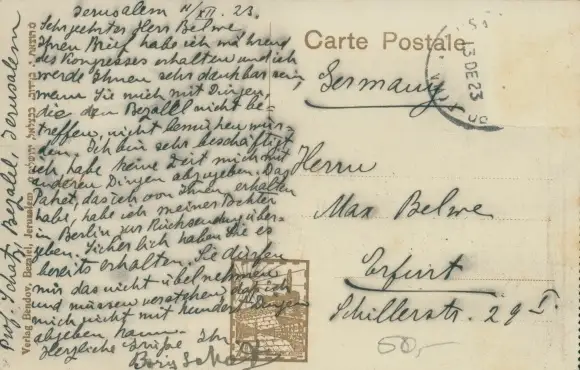 Jerusalem 11/XII. 23.
Sehr geehrter Herr Belwe
Ihren Brief habe ich während
des Kongresses erhalten und ich
werde Ihnen sehr dankbar sein,
wenn Sie mich mit Dingen,
die den Bezalel nicht be-
treffen, nicht bemühen wür-
den. Ich bin sehr beschäftigt
ich habe keine Zeit mich mit
anderen Dingen abzugeben. Das
Paket, das ich von Ihnen erhalten
habe, habe ich meiner Tochter
in Berlin zur Rücksendung über-
geben. Sicherlich haben Sie es
bereits erhalten. Sie dürfen
mir das nicht übel nehmen
und müssen verstehen daß ich
mich nicht mit hundert Dingen
abgeben kann.
Herzliche Grüße Ihr
Boris Schatz
Prof. Schatz, Bezalel, Jerusalem
Verlag Bendov, Bezalel, Jerusalem
Carte Postale
13 DE 23
Germany
Herrn
Max Belwe
Erfurt
Schillerstr. 29 I.
50,-